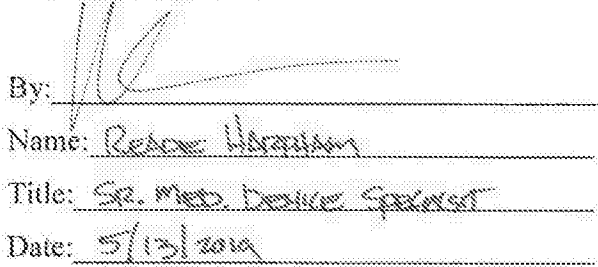 By:
Name: Reade Harpham
Title: SR. MED. DEVICE SPECIALIST
Date: 5/13/2019